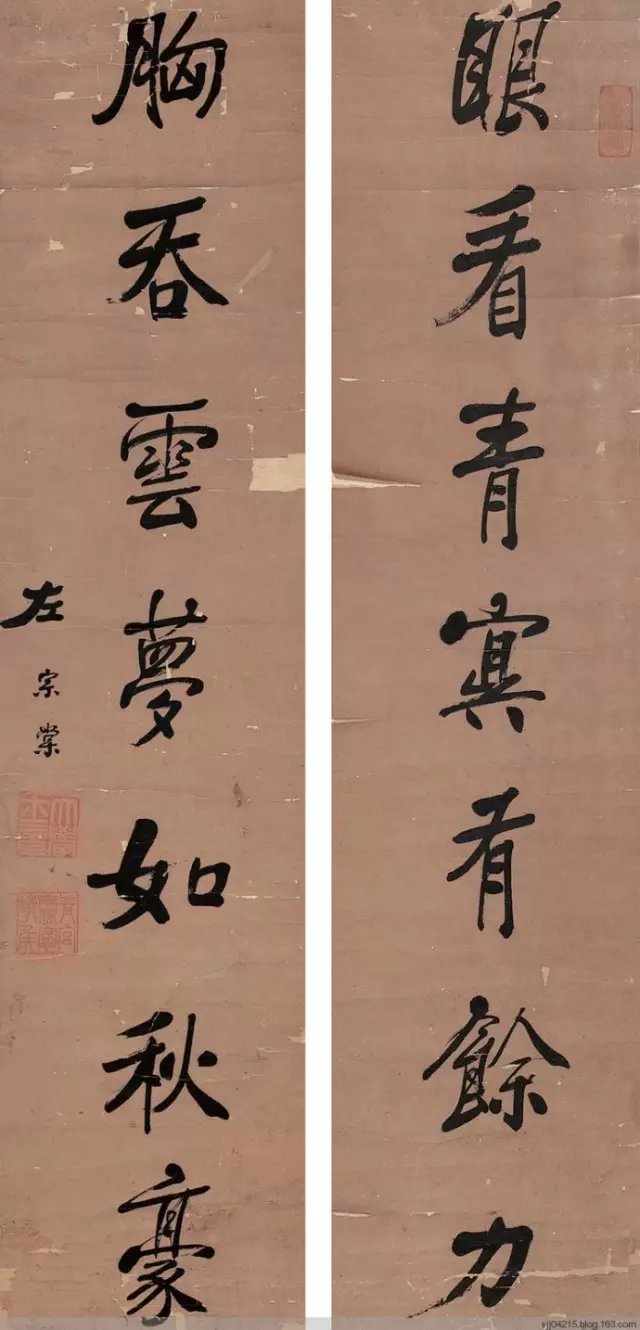 眼看青冥有餘力
胸吞雲夢如秋豪
左宗棠
sjj04215.blog.163.com